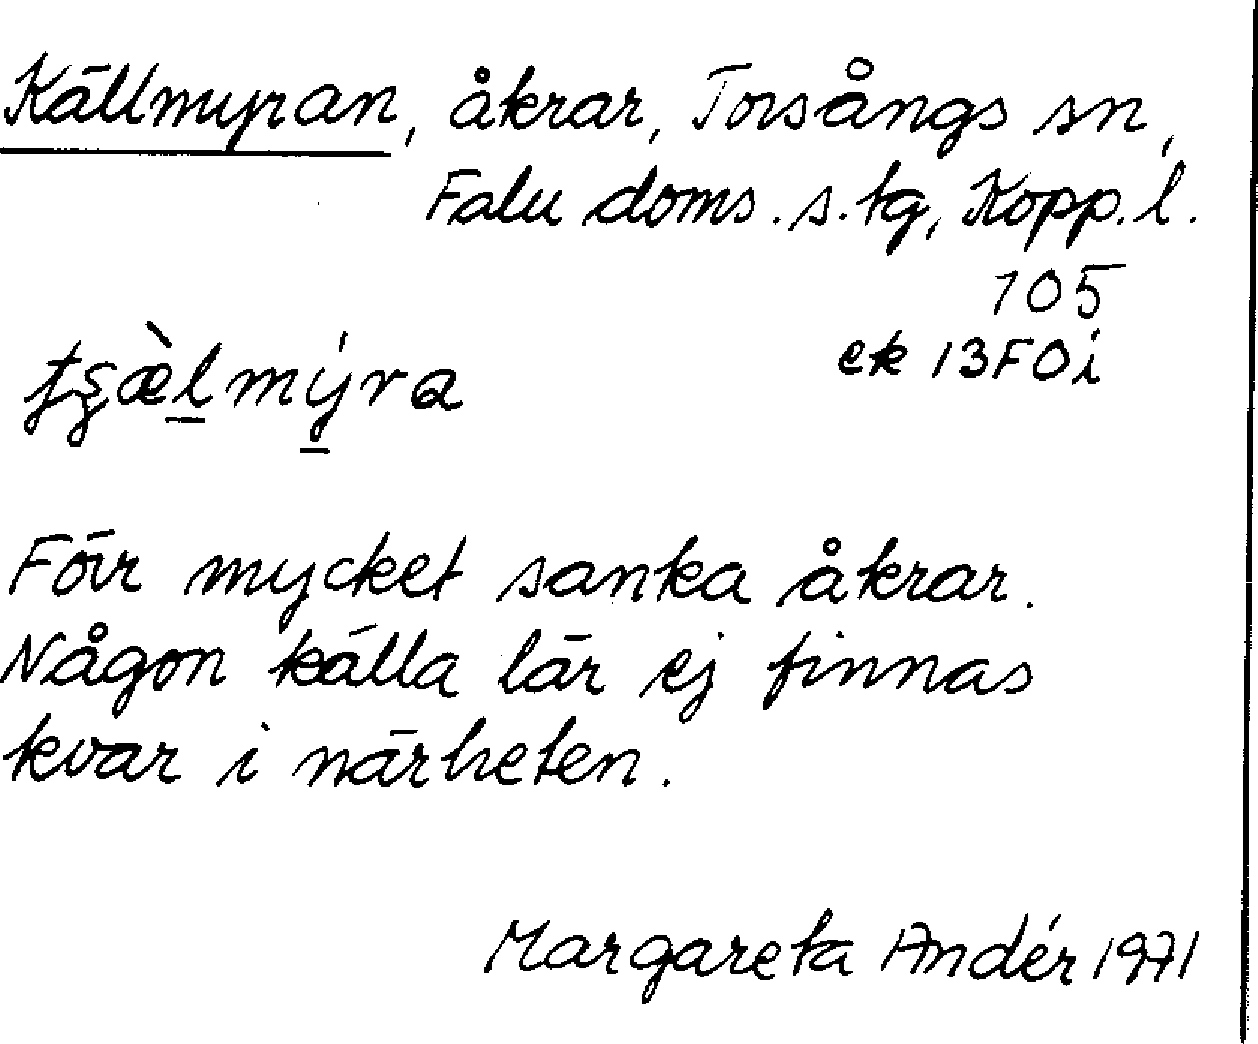 Källmyran, åkrar, Torsångs sn,
Falu doms. s. tg, Kopp. l.
105
ek 13F0i
För mycket sanka åkrar.
Någon källa lär ej finnas
kvar i närheten.
Margareta Andér 1971